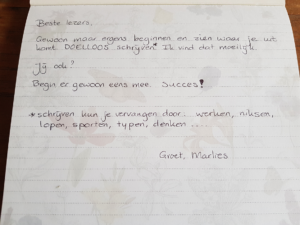 Beste lezers,
Gewoon maar ergens beginnen en zien waar je uit
komt. DOELLOOS schrijven*. Ik vind dat moeilijk.
Jij ook?
Begin er gewoon eens mee. Succes!
*schrijven kun je vervangen door: werken, niksen,
lopen, sporten, typen, denken ....
Groet, Marlies